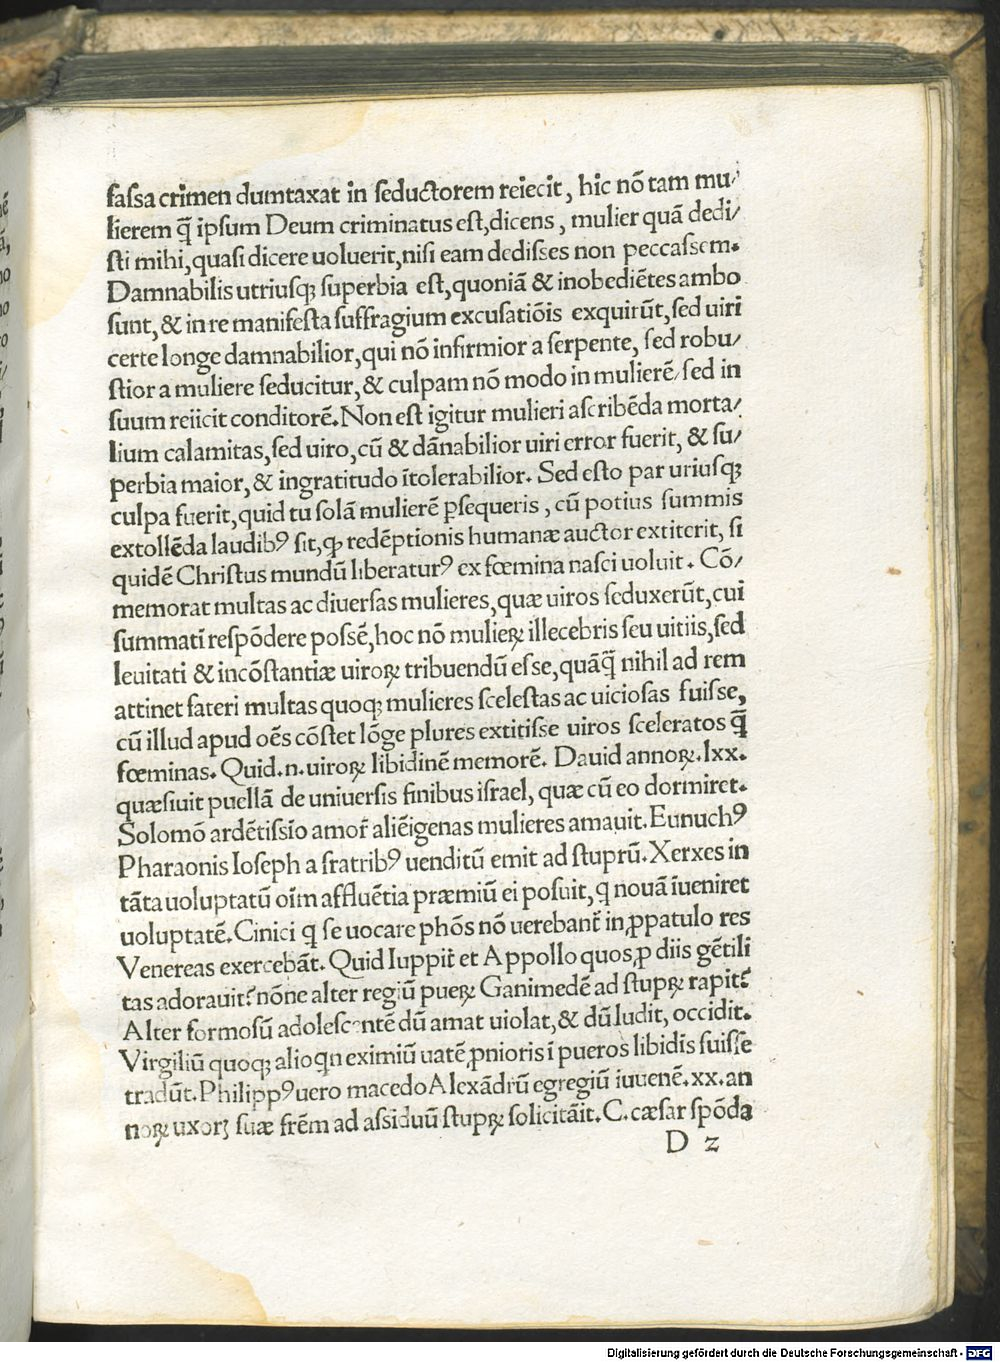 fassa crimen dumtaxat in seductorem reiecit, hic nõ tam mu/
lierem q̃ ipsum Deum criminatus est, dicens, mulier quã dedi/
sti mihi, quasi dicere uoluerit, nisi eam dedisses non peccassem.
Damnabilis utriusqꝫ superbia est, quoniã & inobediẽtes ambo
sunt, & in re manifesta suffragium excusatiõis exquirũt, sed uiri
certe longe damnabilior, qui nõ infirmior a serpente, sed robu/
stior a muliere seducitur, & culpam nõ modo in mulierẽ/ sed in
suum reiicit conditorẽ. Non est igitur mulieri ascribẽda morta/
lium calamitas, sed uiro, cũ & dãnabilior uiri error fuerit, & su/
perbia maior, & ingratitudo ĩtolerabilior. Sed esto par uriusqꝫ
culpa fuerit, quid tu solã mulierẽ ꝑsequeris, cũ potius summis
extollẽda laudibꝰ sit, ꝙ redẽptionis humanæ auctor extiterit, si
quidẽ Christus mundũ liberaturꝰ ex fœmina nasci uoluit. Cõ/
memorat multas ac diuersas mulieres, quæ uiros seduxerũt, cui
summatĩ respõdere possẽ, hoc nõ mulieꝝ illecebris seu uitiis, sed
leuitati & incõstantiæ uiroꝝ tribuendũ esse, quãq̃ nihil ad rem
attinet fateri multas quoqꝫ mulieres scelestas ac uiciosas fuisse,
cũ illud apud oẽs cõstet lõge plures extitisse uiros sceleratos q̃
fœminas. Quid.n.uiroꝝ libidinẽ memorẽ. Dauid annoꝝ.lxx.
quæsiuit puellã de uniuersis finibus israel, quæ cũ eo dormiret.
Solomõ ardẽtissio amor̃ aliẽigenas mulieres amauit. Eunuchꝰ
Pharaonis Ioseph a fratribꝰ uenditũ emit ad stuprũ. Xerxes in
tãta uoluptatũ oĩm affluẽtia præmiũ ei posuit, q nouã ĩueniret
uoluptatẽ. Cinici q se uocare phõs nõ uerebant̃ in ꝓpatulo res
Venereas exercebãt. Quid Iuppit̃ et Appollo quos ꝓ diis gẽtili
tas adorauit? nõne alter regiũ pueꝝ Ganimedẽ ad stupꝝ rapit?
Alter formosũ adolescentẽ dũ amat uiolat, & dũ ludit, occidit.
Virgiliũ quoqꝫ alioqn eximiũ uatẽ ꝓnioris ĩ pueros libidis fuisse
tradũt. Philippꝰ uero macedo Alexãdrũ egregiũ iuuenẽ.xx.an
noꝝ uxorꝫ suæ frẽm ad assiduũ stupꝝ solicitãit. C. cæsar spõda
D 2
Digitalisierung gefördert durch die Deutsche Forschungsgemeinschaft - DFG